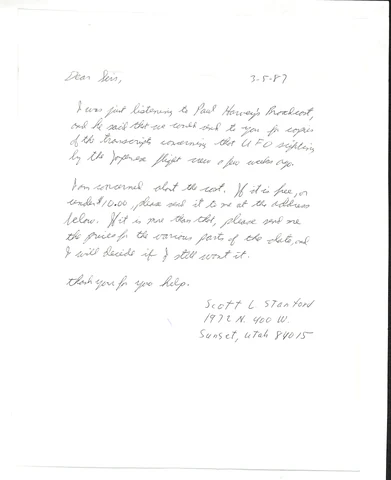 Dear Sirs, 3-5-87
I was just listening to Paul Harvey's Broadcast,
and he said that we could send to you for copies
of the transcripts concerning that UFO sighting
by the Japanese flight crew a few weeks ago.
I am concerned about the cost. If it is free, or
under $10.00, please send it to me at the address
below. If it is more than that, please send me
the prices for the various parts of the data, and
I will decide if I still want it.
Thank you for your help.
Scott L Stanford
1972 N. 400 W.
Sunset, Utah 84015